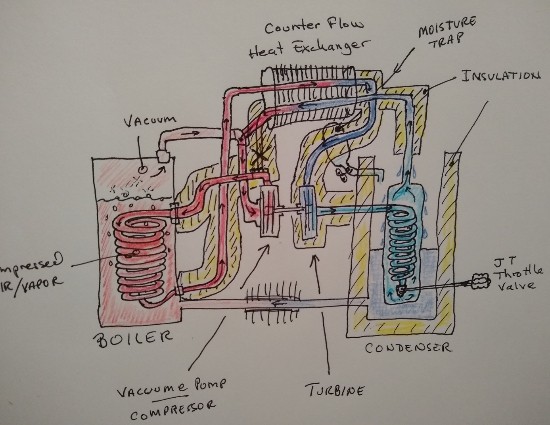 Counter Flow
Heat Exchanger
MOISTURE
TRAP
INSULATION
VACUUM
mpressed
IR/VAPOR
JT
Throttle
Valve
BOILER
CONDENSER
VACUUME PUMP
COMPRESSOR
TURBINE